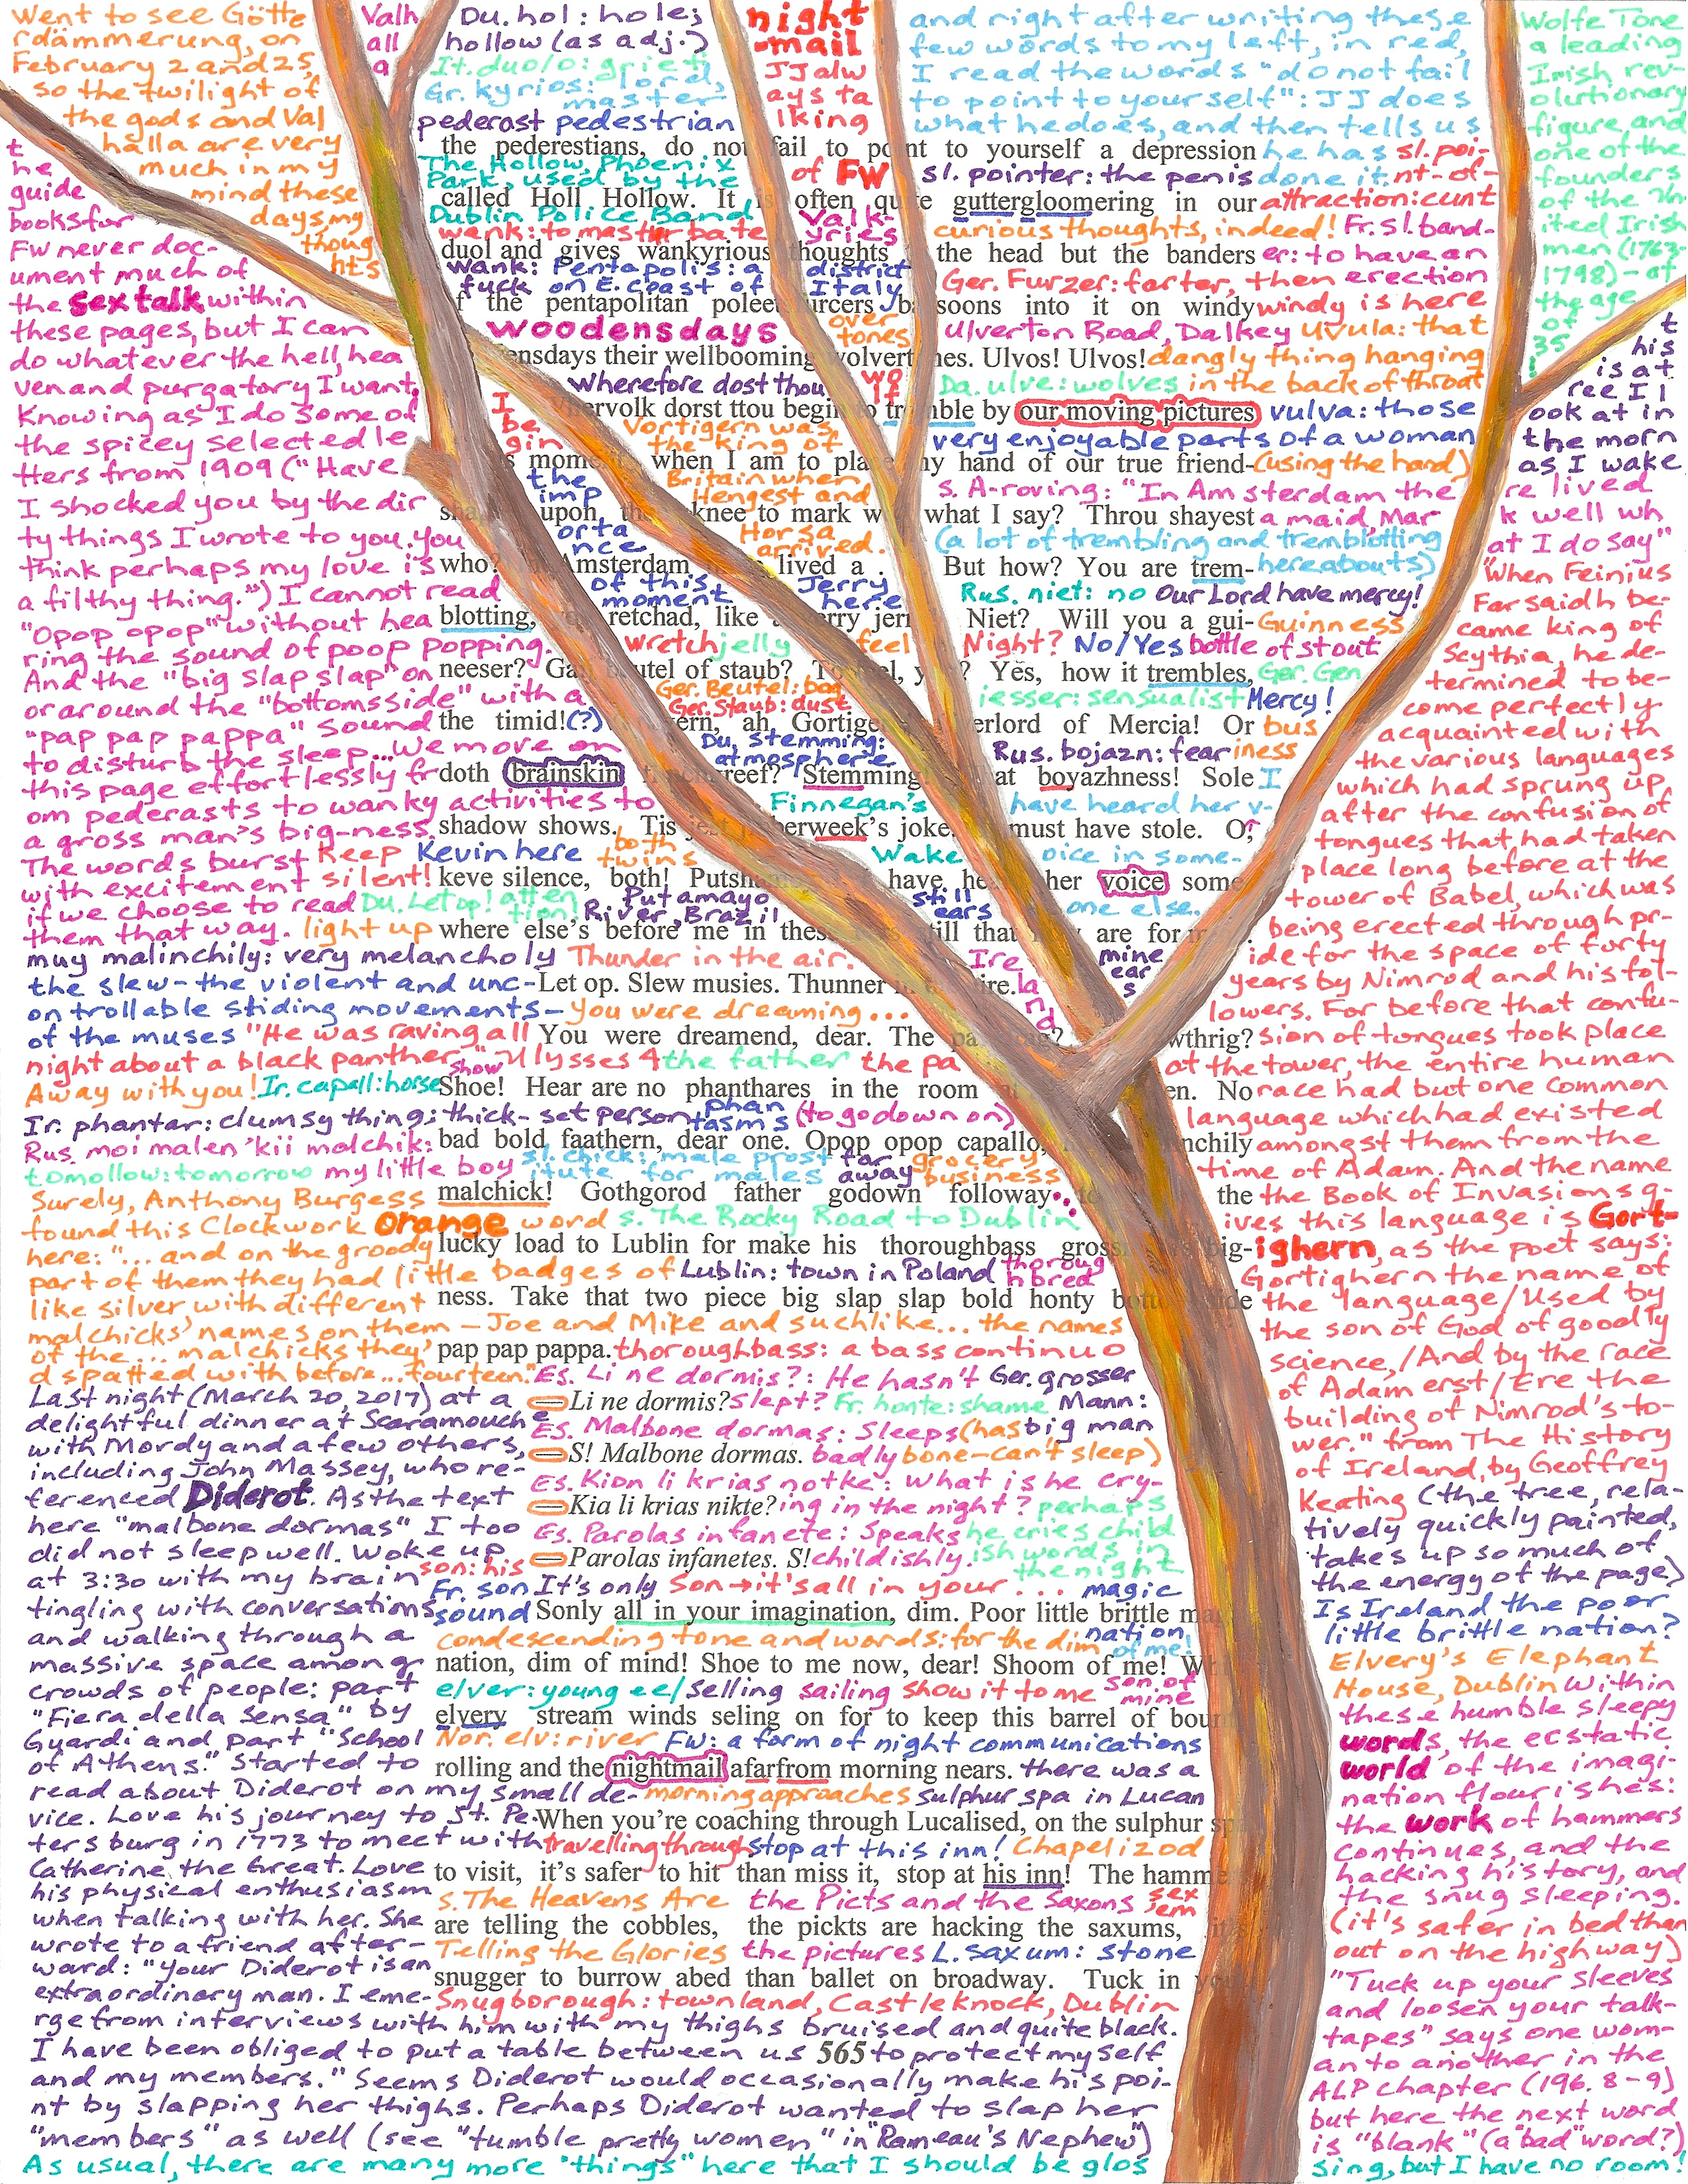 Went to see Götte
rdämmerung, on
February 2 and 25,
so the twilight of
the gods and Val
halla are very
much in my
mind these
days, my
thoug
hts
Valh
all
a
t
he
guide
books for
FW never doc-
ument much of
the sex talk within
these pages, but I can
do whatever the hell, hea
ven and purgatory I want.
Knowing as I do some of
the spicey selected le
tters from 1909 ("Have
I shocked you by the dir
ty things I wrote to you, you
think perhaps my love is
a filthy thing.") I cannot read
"Opop opop" without hea
ring the sound of poop popping.
And the "big slap slap" on
or around the "bottomsside" with a
"pap pap pappa" sound
to disturb the sleep... We move on
this page effortlessly fr
om pederasts to wanky activities to
a gross man's big-ness.
The words burst
with excitement
if we choose to read
them that way.
Du. hol: hole;
hollow (as adj.)
It. duolo: grief
Gr. kyrios: lord,
master
pederast pedestrian
night
-mail
JJ alw
ays ta
lking
of FW
and right after writing these
few words to my left, in red,
I read the words "do not fail
to point to yourself": JJ does
what he does, and then tells us
he has
done it.
Wolfe Tone
a leading
Irish rev-
olutionary
figure and
one of the
founders
of the Un
ited Irish
men (1763-
1798) - at
the age
of
35
!
the pederestians, do not fail to point to yourself a depression
The Hollow, Phoenix
Park, used by the
sl. pointer: the penis
sl. poi-
nt-of-
called Holl Hollow. It is often quite guttergloomering in our
attraction: cunt
Dublin Police Band
wank: to masturbate
Valk-
yries
curious thoughts, indeed! Fr. sl. band-
duol and gives wankyrious thoughts the head but the banders
er: to have an
wank: Pentapolis: a district
fuck on E. coast of Italy
Ger. Furzer: farter, then erection
the pentapolitan poleetfurcers bassoons into it on windy
windy is here
woodensdays
over
tones
Ulverton Road, Dalkey
ensdays their wellbooming wolvertones. Ulvos! Ulvos!
uvula: that
dangly thing hanging
in the back of throat
Wherefore dost thou
wo
lf
Da. ulve: wolves
hervolk dorst ttou begin to tremble by our moving pictures
vulva: those
very enjoyable parts of a woman
(using the hand)
I
be
gin
Vortigern was
the King of
Britain when
Hengest and
Horsa
arrived.
moment when I am to place my hand of our true friend-
the
imp
orta
nce
of this
moment
s. A-roving: "In Amsterdam the
re lived
upon knee to mark what I say? Throu shayest
a maid, Mar
k well wh
at I do say"
(a lot of trembling and tremblotting
hereabouts)
who? Amsterdam lived a . But how? You are trem-
Jerry
here
Rus. niet: no Our Lord have mercy!
blotting, retchad, like a jerry jeri Niet? Will you a gui-
Guinness
wretch jelly feel Night? No/Yes bottle of stout
neeser? Ga beutel of staub? To feel, y ? Yes, how it trembles,
Ger. Gen
iesser: sensualist
Mercy!
Ger. Beutel: bag
Ger. Staub: dust
the timid! (?) ern, ah, Gortige erlord of Mercia! Or
bus
iness
Du. Stemming:
atmosphere
Rus. bojazn: fear
doth brainskin reef? Stemming! at boyazhness! Sole
Finnegan's
Wake
I
have heard her v-
oice in some-
one else.
shadow shows. Tis jest week's joke. must have stole. O,
Keep
silent!
Kevin here
both
twins
keve silence, both! Putsh have he her voice some-
Du. Let op! atten
tion
Putamayo
River, Brazil
still
ears
light up
where else's before me in these till that are for
muy malinchily: very melancholy
Thunder in the air.
Ire
la
nd
mine
ear
s
the slew - the violent and unc-
ontrollable sliding movements -
of the muses
Let op. Slew musies. Thunner ire.
You were dreaming...
"He was raving all
night about a black panther." Ulysses 4
You were dreamend, dear. The wthrig?
show
the father the pa
Away with you! Ir. capall: horse
Shoe! Hear are no phanthares in the room en. No
Ir. phantar: clumsy thing; thick-set person
phan
tasms
(to go down on)
bad bold faathern, dear one. Opop opop capallo, nchily
Rus. moi malen'kii malchik:
my little boy
tomollow: tomorrow
sl. chick: male prost
itute for males
far
away
grocery
business
malchick! Gothgorod father godown followay the
s. The Rocky Road to Dublin
lucky load to Lublin for make his thoroughbass gross big-
Lublin: town in Poland
thoroug
hbred
ness. Take that two piece big slap slap bold honty bott side
pap pap pappa.
thoroughbass: a bass continuo
Surely, Anthony Burgess
found this Clockwork Orange word
here: "... and on the groody
part of them they had little badges of
like silver with different
malchicks' names on them - Joe and Mike and suchlike... the names
of the... malchicks they'
d spatted with before... fourteen."
Es. Li ne dormis?: He hasn't
slept?
Ger. grosser
Mann:
big man
Fr. honte: shame
— Li ne dormis?
Es. Malbone dormas: Sleeps
badly
(has
bone-can't sleep)
— S! Malbone dormas.
Es. Kion li krias nokte: What is he cry-
ing in the night?
— Kia li krias nikte?
perhaps
he cries child
ish words in
the night
Es. Parolas infanete: Speaks
childishly.
— Parolas infanetes. S!
son: his
Fr. son
sound
It's only Son → it's all in your...
magic
nation
of me!
Sonly all in your imagination, dim. Poor little brittle ma
condescending tone and words: for the dim
nation, dim of mind! Shoe to me now, dear! Shoom of me! Wh
elver: young eel selling sailing show it to me
son of
mine
elvery stream winds seling on for to keep this barrel of boun
Nor. elv: river FW: a form of night communications
rolling and the nightmail afarfrom morning nears.
there was a
sulphur spa in Lucan
morning approaches
When you're coaching through Lucalised, on the sulphur sp
travelling through stop at this inn! Chapelizod
to visit, it's safer to hit than miss it, stop at his inn! The hamme
s. The Heavens Are
Telling the Glories
the Picts and the Saxons
sex
sem
are telling the cobbles, the pickts are hacking the saxums, it's
the pictures L. saxum: stone
snugger to burrow abed than ballet on broadway. Tuck in
Snugborough: townland, Castleknock, Dublin
565
Last night (March 20, 2017) at a
delightful dinner at Scaramouche
with Mordy and a few others,
including John Massey, who re-
ferenced Diderot. As the text
here "malbone dormas" I too
did not sleep well. Woke up
at 3:30 with my brain
tingling with conversations
and walking through a
massive space among
crowds of people: part
"Fiera della Sensa" by
Guardi and part "School
of Athens." Started to
read about Diderot on my small de-
vice. Love his journey to St. Pe-
tersburg in 1773 to meet with
Catherine the Great. Love
his physical enthusiasm
when talking with her. She
wrote to a friend after-
ward: "Your Diderot is an
extraordinary man. I eme-
rge from interviews with him with my thighs bruised and quite black.
I have been obliged to put a table between us to protect myself
and my members." Seems Diderot would occasionally make his poi-
nt by slapping her thighs. Perhaps Diderot wanted to slap her
"members" as well (see "tumble pretty women" in "Rameau's Nephew")
As usual, there are many more "things" here that I should be glos
sing, but I have no room!
t
his
is a t
ree I l
ook at in
the morn
as I wake
"When Feinius
Farsaidh be-
came king of
Scythia, he de-
termined to be-
come perfectly
acquainted with
the various languages
which had sprung up
after the confusion of
tongues that had taken
place long before at the
tower of Babel, which was
being erected through pr-
ide for the space of forty
years by Nimrod and his fol-
lowers. For before that confu-
sion of tongues took place
at the tower, the entire human
race had but one common
language which had existed
amongst them from the
time of Adam. And the name
the Book of Invasions g-
ives this language is Gort-
ighern, as the poet says:
Gortighern the name of
the language/Used by
the son of God of goodly
science,/And by the race
of Adam erst/Ere the
building of Nimrod's to-
wer." from The History
of Ireland, by Geoffrey
Keating (the tree, rela-
tively quickly painted,
takes up so much of
the energy of the page)
Is Ireland the poor
little brittle nation?
Elvery's Elephant
House, Dublin Within
these humble sleepy
words, the ecstatic
world of the imagi-
nation flourishes:
the work of hammers
continues, and the
hacking history, and
the snug sleeping.
(it's safer in bed than
out on the highway)
"Tuck up your sleeves
and loosen your talk-
tapes" says one wom-
an to another in the
ALP chapter (196. 8-9)
but here the next word
is "blank" (a "bad" word?)